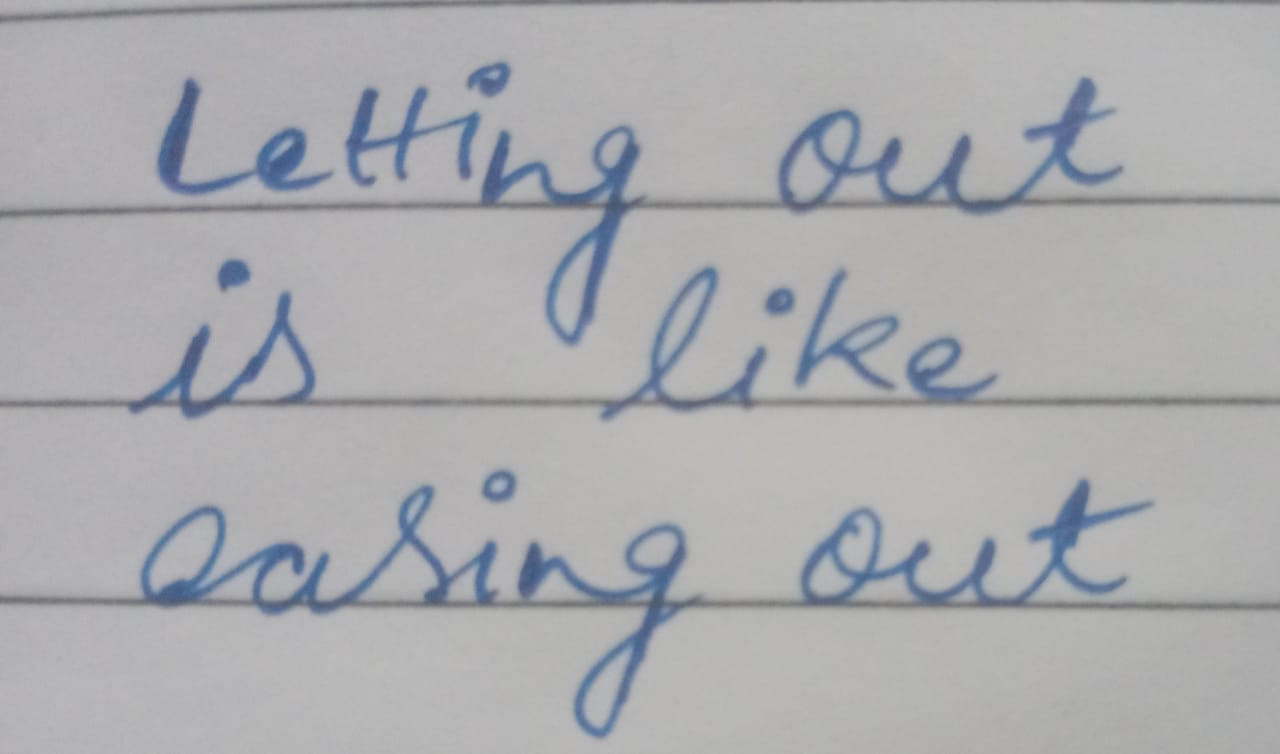 Letting out
is like
easing out